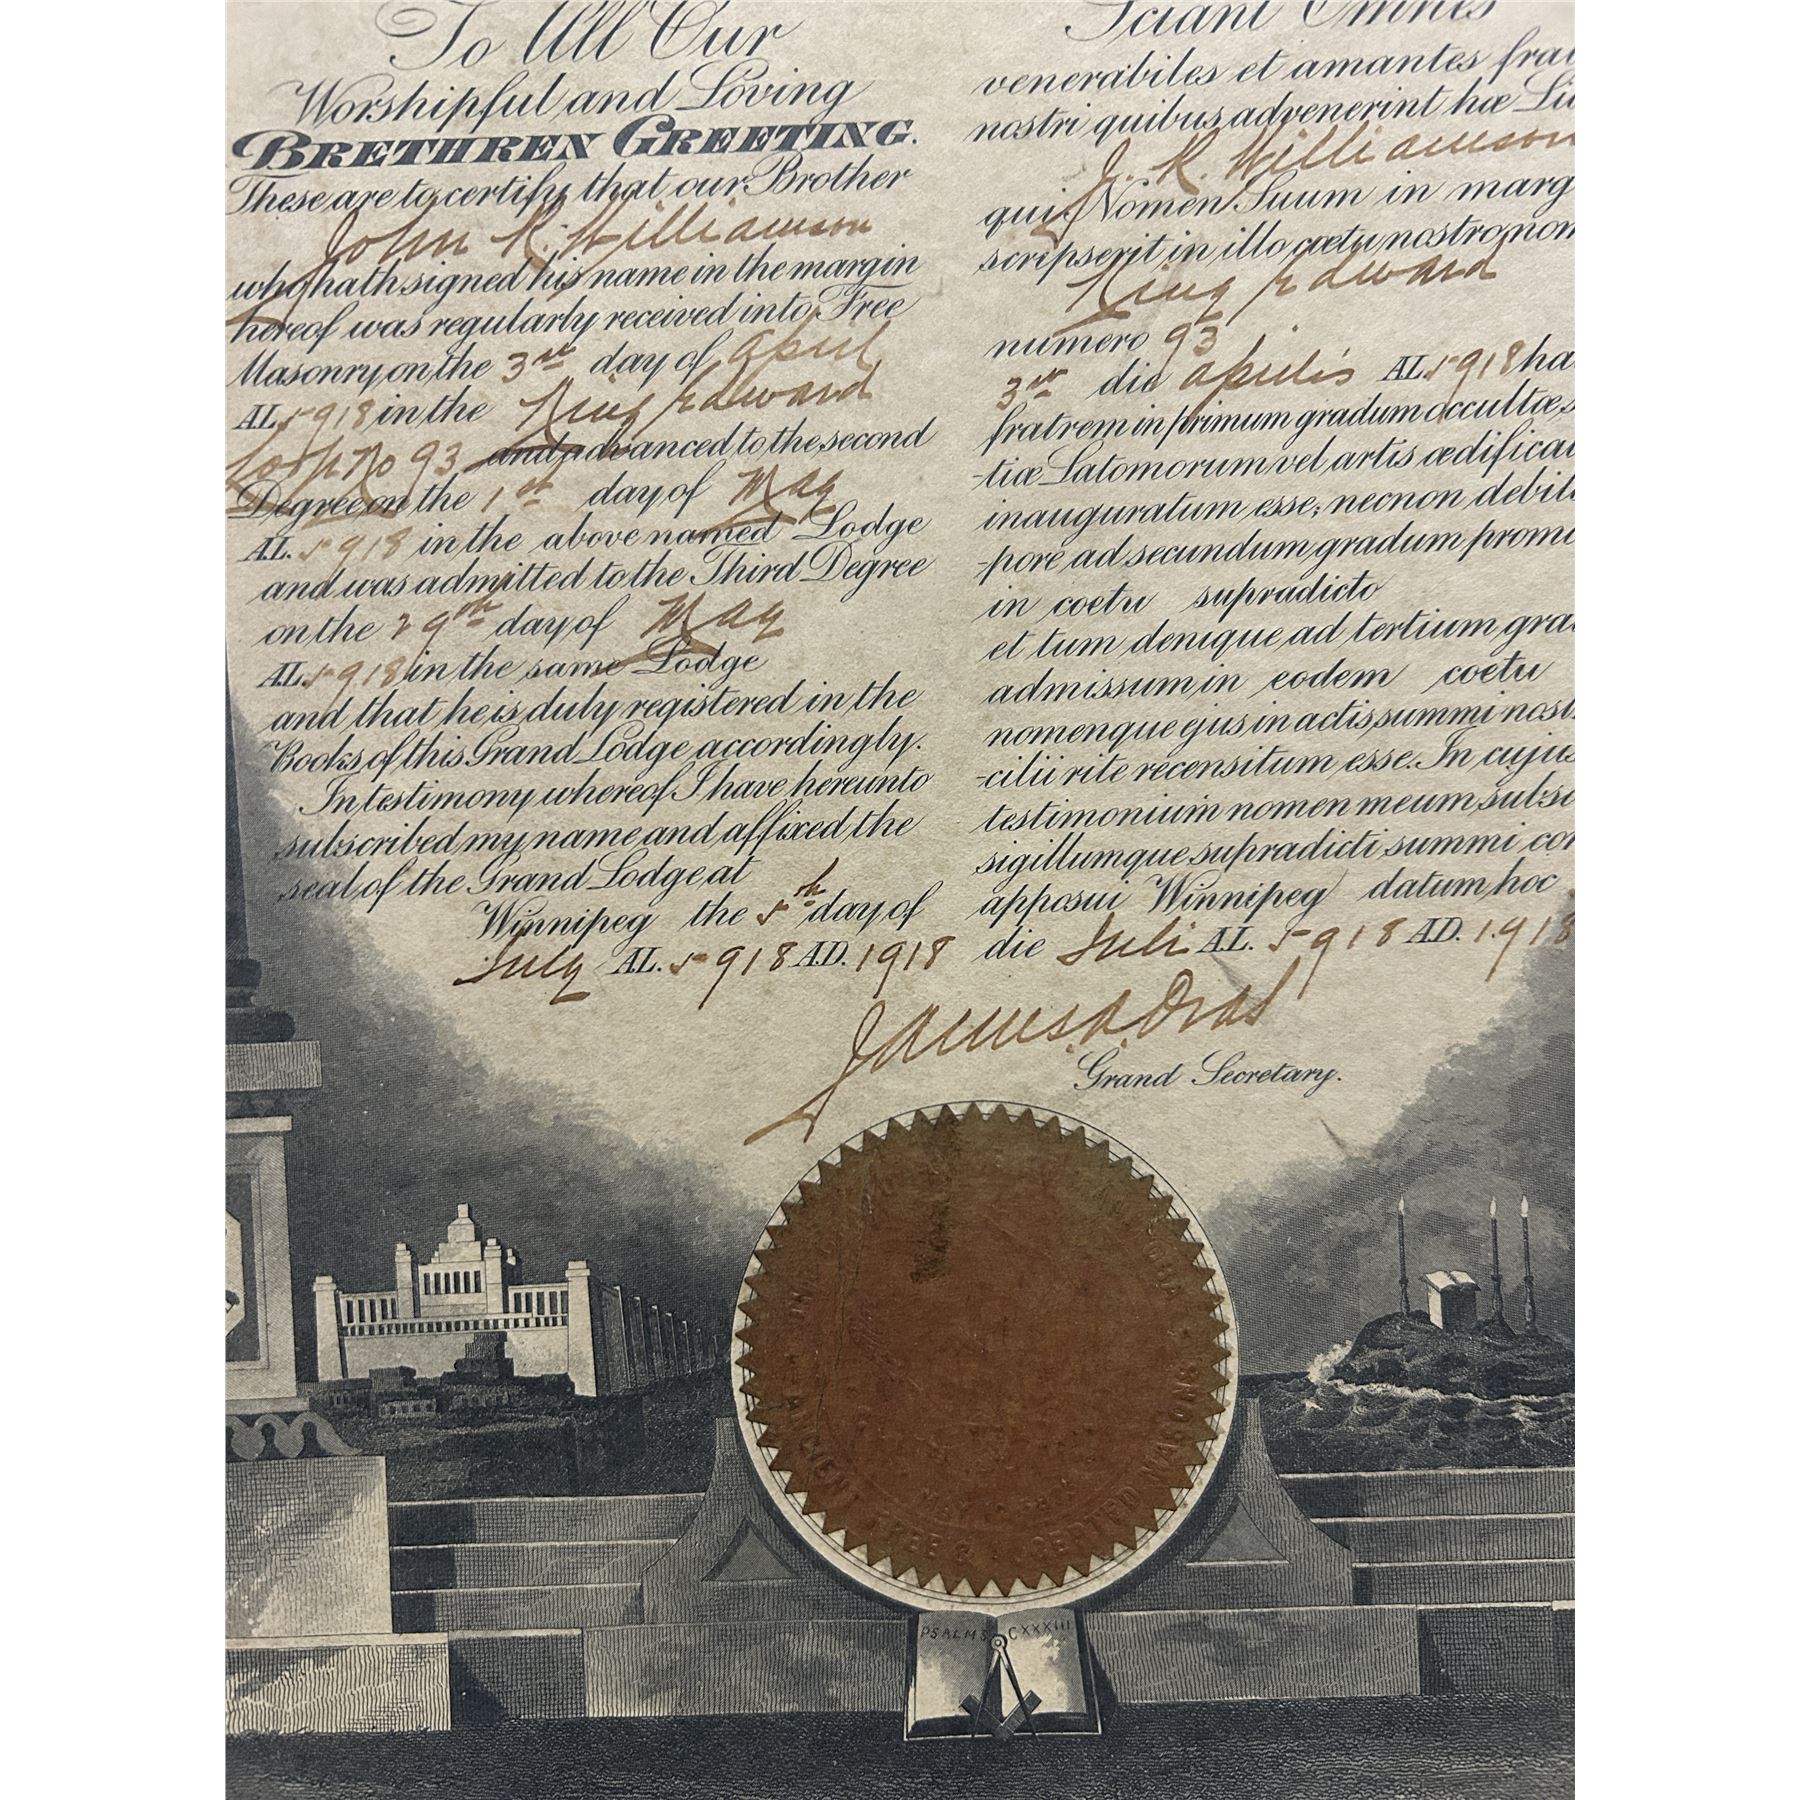 To All Our
Worshipful and Loving
BRETHREN GREETING.
These are to certify that our Brother
John R. Williamson
who hath signed his name in the margin
hereof was regularly received into Free
Masonry on the 3rd day of April
AL 5918 in the King Edward
No 93 and advanced to the second
Degree on the 1st day of May
AL. 5918 in the above named Lodge
and was admitted to the Third Degree
on the 29th day of May
AL. 5918 in the same Lodge
and that he is duly registered in the
Books of this Grand Lodge accordingly.
In testimony whereof I have hereunto
subscribed my name and affixed the
seal of the Grand Lodge at
Winnipeg the 5th day of
July AL. 5918 A.D. 1918
Sciant Omnes
venerabiles et amantes frat
nostri quibus advenerint hæ Li
J. R. Williamson
qui Nomen Suum in marg
scripserit in illo cœtu nostro nom
King Edward
numero 93
3rd die Aprilis AL. 5918 ha
fratrem in primum gradum occultæ s
-tiæ Latomorum vel artis ædifica
inauguratum esse; necnon debit
-pore ad secundum gradum prom
in coetu supradicto
et tum denique ad tertium gra
admissum in eodem coetu
nomenque ejus in actis summi nost
-cilii rite recensitum esse. In cujus
testimonium nomen meum subs
sigillumque supradicti summi con
apposui Winnipeg datum hoc
die Juli A.L. 5918 A.D. 1918
James A.
Grand Secretary.
ANCIENT FREE & ACCEPTED MASONS
PSALMS CXXXIII